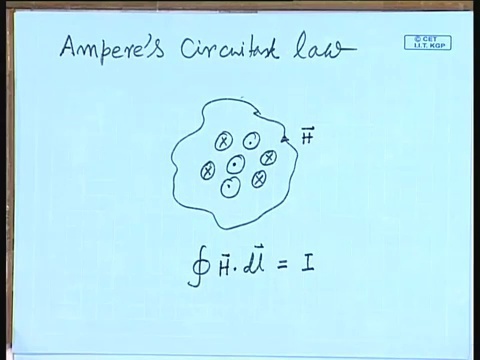 Ampere's Circuital law
© CET
I.I.T. KGP
x ·
H⃗
x · x
· x
∮ H⃗ · dl⃗ = I